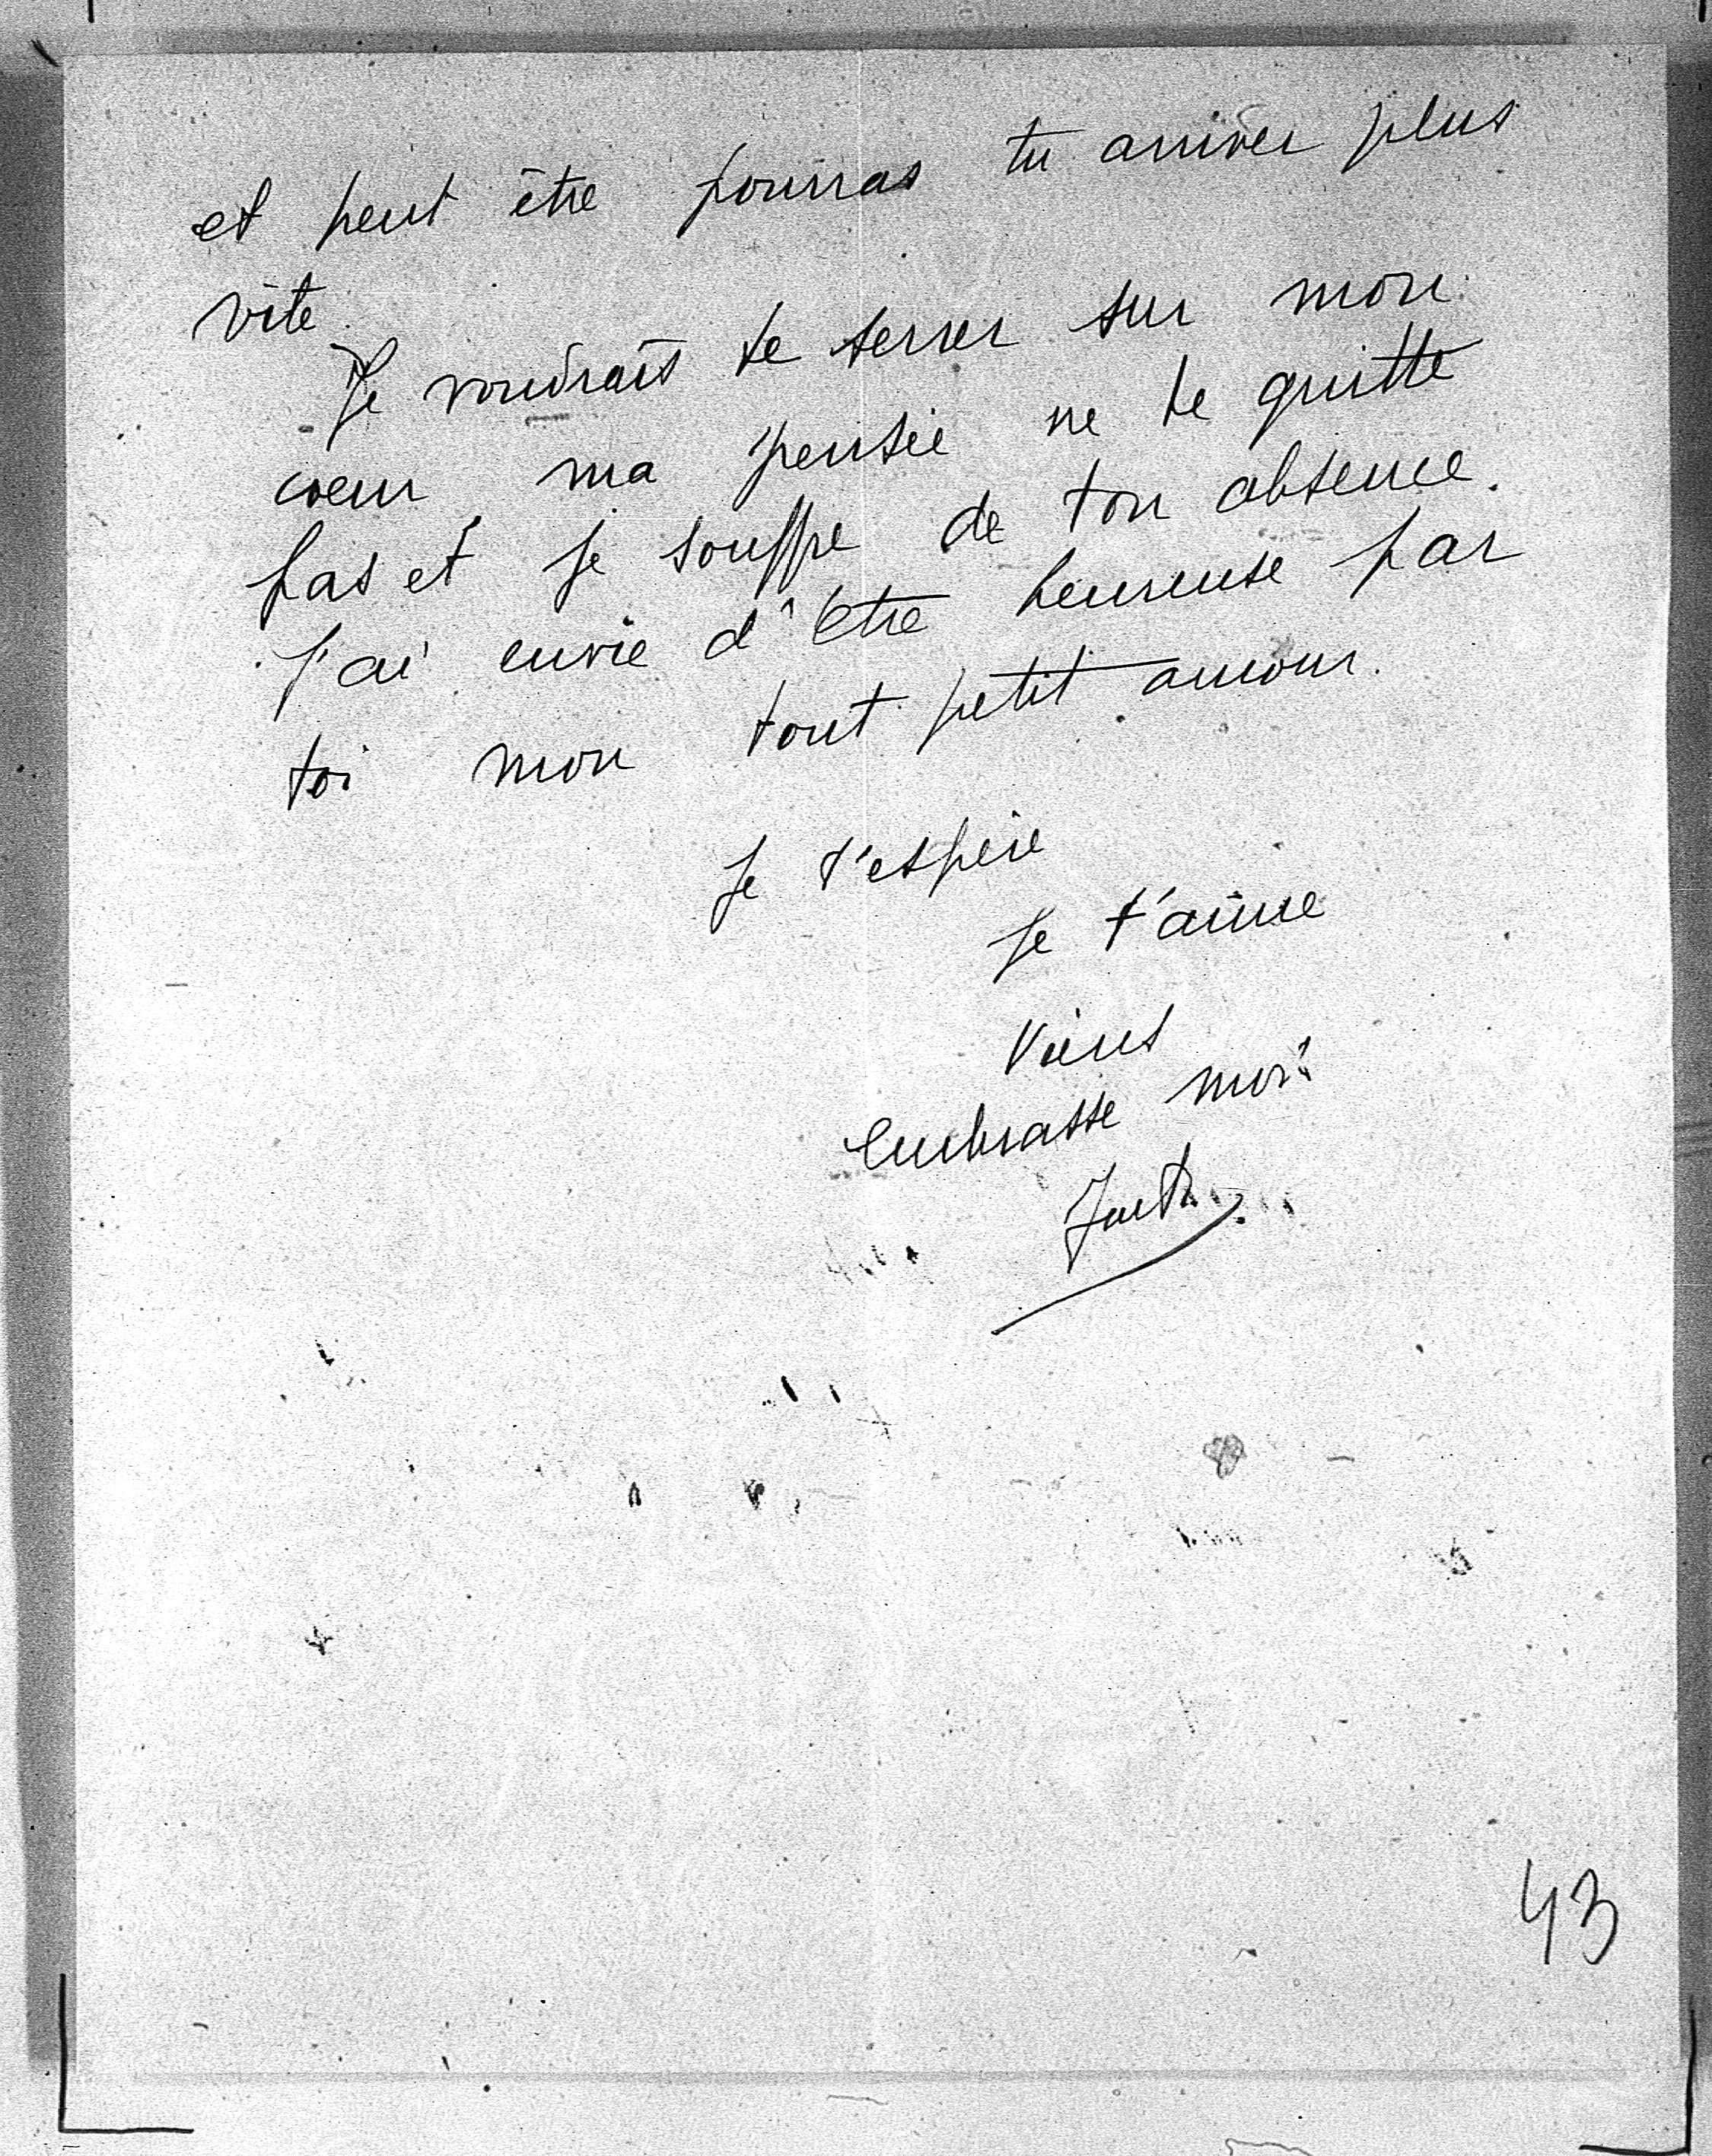 et peut être pourras tu arriver plus
vite.
Je voudrais te serrer sur mon
coeur ma pensée ne te quitte
pas et je souffre de ton absence.
J'ai envie d'être heureuse par
toi mon tout petit amour.
Je t'espère
Je t'aime
Viens
embrasse moi
43